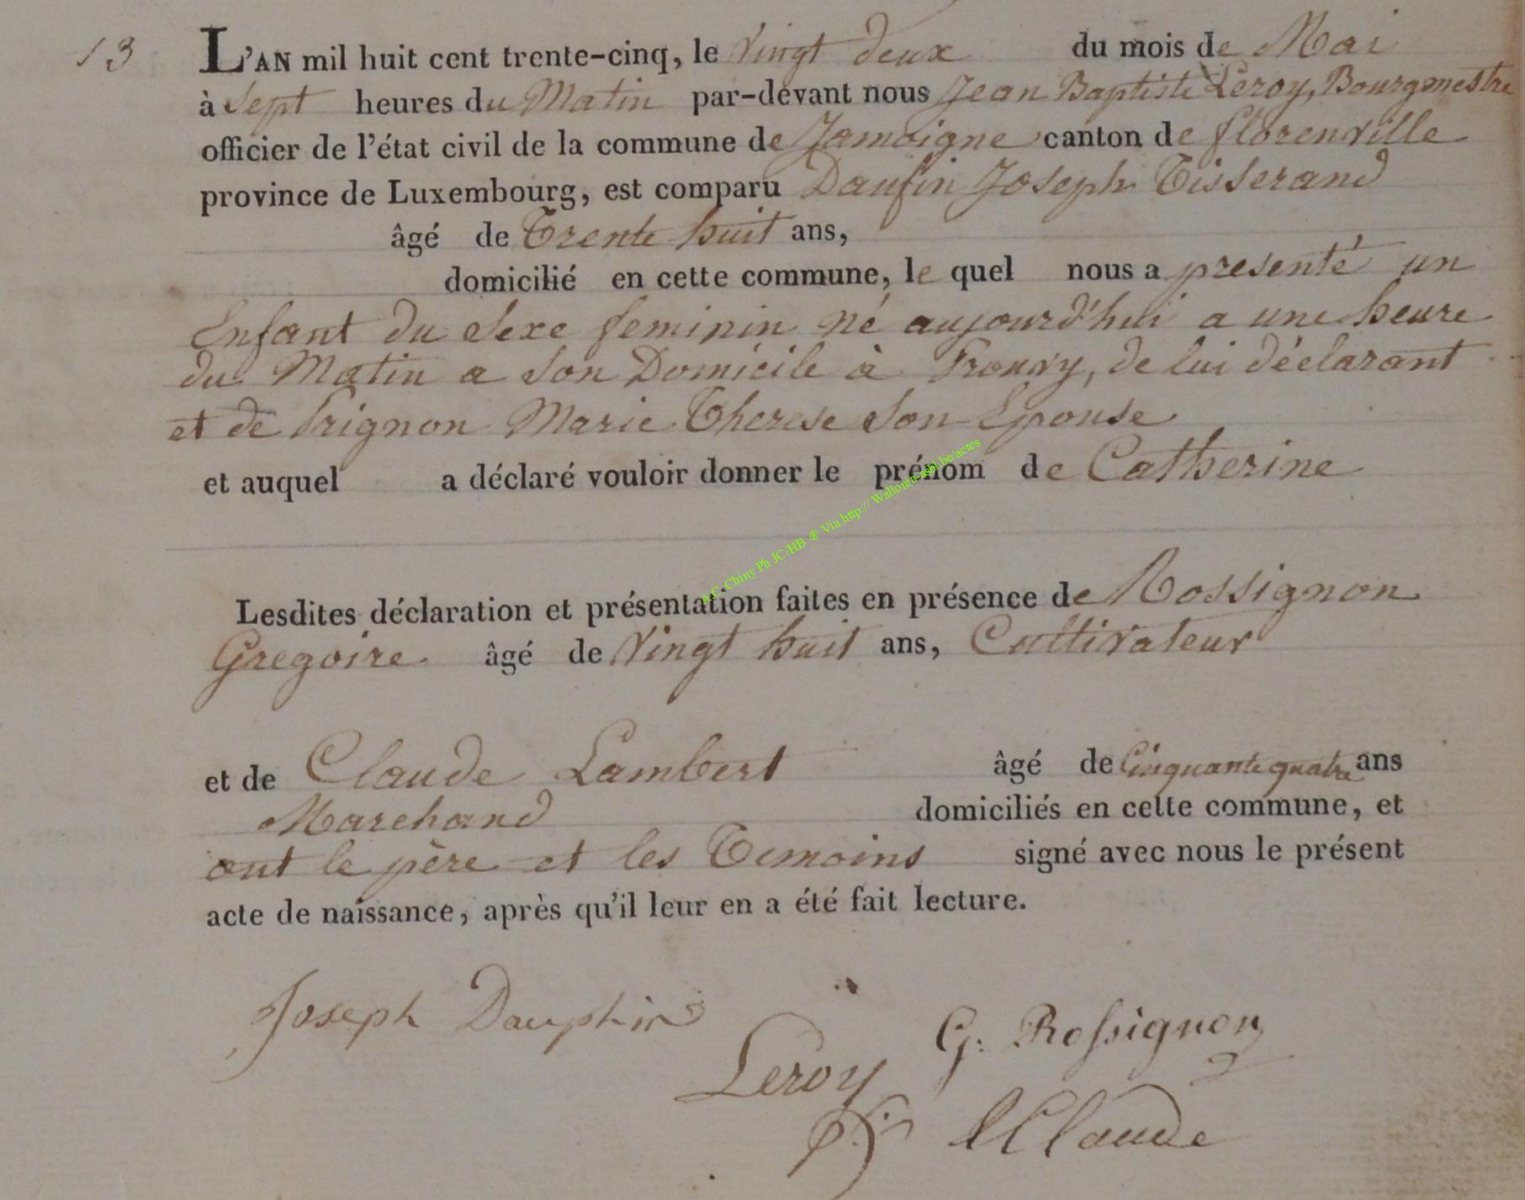 13
L'AN mil huit cent trente-cinq, le Vingt deux du mois de Mai
à Sept heures du Matin par-devant nous Jean Baptiste Leroy, Bourgmestre
officier de l'état civil de la commune de Jamoigne canton de florenville
province de Luxembourg, est comparu Daufin Joseph Tisserand
âgé de Trente huit ans,
domicilié en cette commune, le quel nous a presenté un
Enfant du Sexe feminin né aujourd'hui a une heure
du Matin a Son Domicile à Prouvy, de lui déclarant
et de Prignon Marie Therese Son Epouse
et auquel a déclaré vouloir donner le prénom de Catherine
A.C. Chiny Ph JC/HB ® Via http:// be/actes
Lesdites déclaration et présentation faites en présence de Rossignon
Gregoire âgé de Vingt huit ans, Cultivateur
et de Claude Lambert âgé de Cinquante quatre ans
Marchand domiciliés en cette commune, et
ont le père et les Temoins signé avec nous le présent
acte de naissance, après qu'il leur en a été fait lecture.
Joseph Dauphin
G: Rossignon
Leroy
Claude